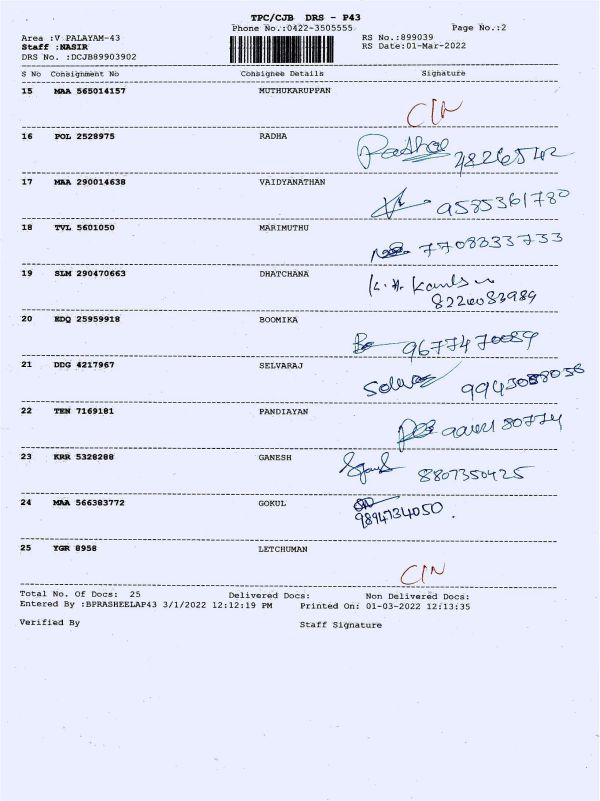 TPC/CJB DRS - P43
Phone No.:0422-3505555 Page No.:2
Area :V PALAYAM-43 RS No.:899039
Staff :NASIR RS Date:01-Mar-2022
DRS No. :DCJB89903902
S No Consignment No Consignee Details Signature
15 MAA 565014157 MUTHUKARUPPAN
C/N
16 POL 2528975 RADHA
Radha
17 MAA 290014638 VAIDYANATHAN
9585361780
18 TVL 5601050 MARIMUTHU
7708333733
19 SLM 290470663 DHATCHANA
8220083989
20 EDQ 25959918 BOOMIKA
9677470089
21 DDG 4217967 SELVARAJ
22 TEN 7169181 PANDIAYAN
23 KRR 5328288 GANESH
8807350425
24 MAA 566383772 GOKUL
9894734050.
25 YGR 8958 LETCHUMAN
C/N
Total No. Of Docs: 25 Delivered Docs: Non Delivered Docs:
Entered By :BPRASHEELAP43 3/1/2022 12:12:19 PM Printed On: 01-03-2022 12:13:35
Verified By Staff Signature